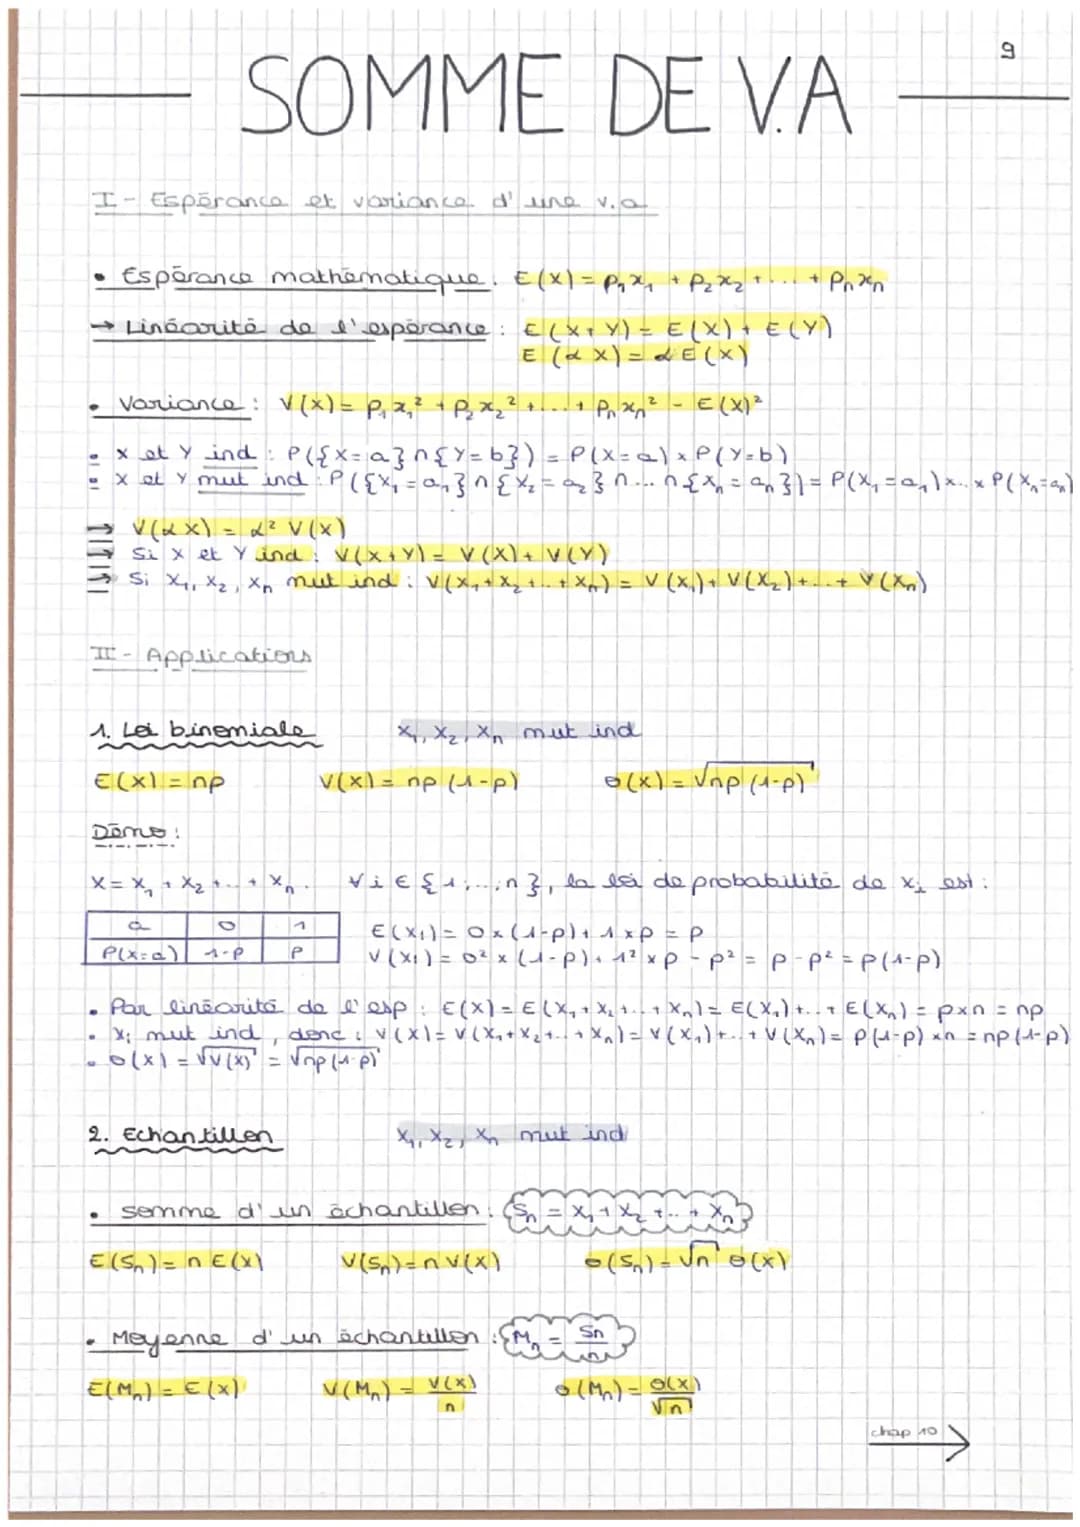 9
SOMME DE V.A
I - Espérance et variance d'une v.a
• Espérance mathématique : E(X) = p₁x₁ + p₂x₂ + ... + pₙxₙ
→ Linéarité de l'espérance : E(X+Y) = E(X) + E(Y)
E(αX) = αE(X)
• Variance : V(X) = p₁x₁² + p₂x₂² + ... + pₙxₙ² - E(X)²
• X et Y ind : P({X=a}∩{Y=b}) = P(X=a) × P(Y=b)
• X et Y mut ind : P({X₁=a₁}∩{X₂=a₂}∩...∩{Xₙ=aₙ}) = P(X₁=a₁)×...×P(Xₙ=aₙ)
→ V(αX) = α² V(X)
→ Si X et Y ind : V(X+Y) = V(X) + V(Y)
→ Si X₁, X₂, Xₙ mut ind : V(X₁+X₂+...+Xₙ) = V(X₁) + V(X₂) + ... + V(Xₙ)
II - Applications
1. Loi binomiale X₁, X₂, Xₙ mut ind
E(X) = np V(X) = np(1-p) σ(X) = √np(1-p)
Démo :
X = X₁ + X₂ + ... + Xₙ. ∀i ∈ {1;...;n}, la loi de probabilité de Xᵢ est :
a 0 1 E(Xᵢ) = 0×(1-p) + 1×p = p
P(X=a) 1-p p V(Xᵢ) = 0²×(1-p) + 1²×p - p² = p - p² = p(1-p)
• Par linéarité de l'esp : E(X) = E(X₁+X₂+...+Xₙ) = E(X₁)+...+E(Xₙ) = p×n = np
• Xᵢ mut ind, donc : V(X) = V(X₁+X₂+...+Xₙ) = V(X₁)+...+V(Xₙ) = p(1-p)×n = np(1-p)
• σ(X) = √V(X) = √np(1-p)
2. Echantillon X₁, X₂, Xₙ mut ind
• Somme d'un échantillon : Sₙ = X₁ + X₂ + ... + Xₙ
E(Sₙ) = n E(X) V(Sₙ) = n V(X) σ(Sₙ) = √n σ(X)
• Moyenne d'un échantillon : Mₙ = Sₙ/n
E(Mₙ) = E(X) V(Mₙ) = V(X)/n σ(Mₙ) = σ(X)/√n
chap 10 →